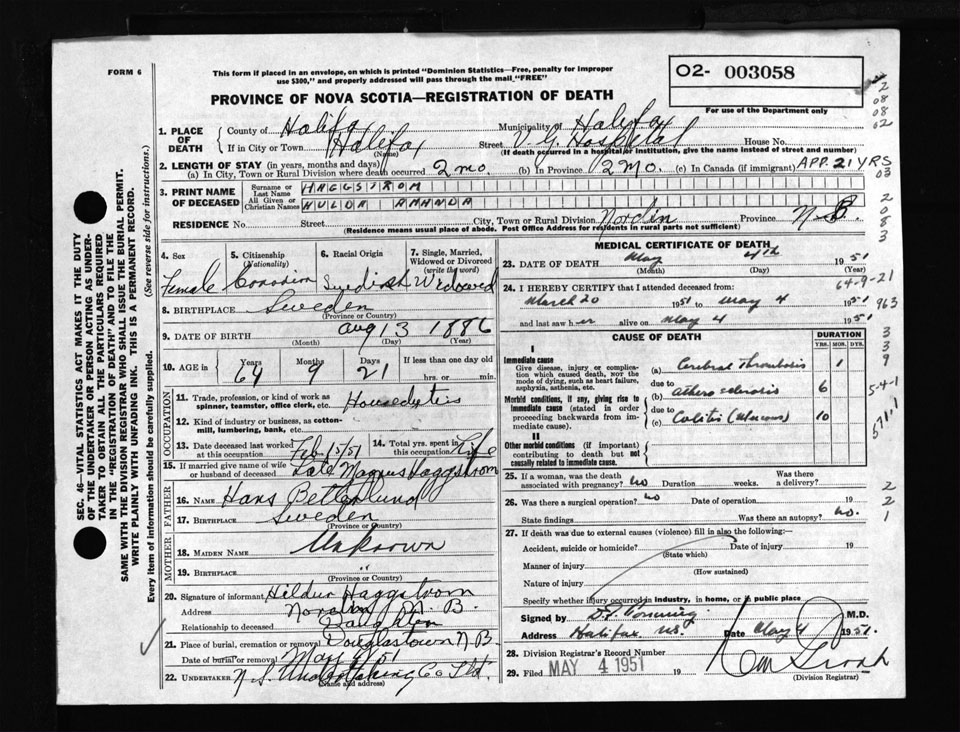 FORM 6
This form if placed in an envelope, on which is printed "Dominion Statistics—Free, penalty for improper
use $300," and properly addressed will pass through the mail "FREE"
O2- 003058
For use of the Department only
PROVINCE OF NOVA SCOTIA—REGISTRATION OF DEATH
2
08
08
02
1. PLACE OF DEATH
County of Halifax Municipality of Halifax
If in City or Town Halifax Street V. G. Hospital House No.
(Name) (If death occurred in a hospital or institution, give the name instead of street and number)
2. LENGTH OF STAY (in years, months and days)
(a) In City, Town or Rural Division where death occurred 2 mo. (b) In Province 2 MO. (c) In Canada (if immigrant) APP. 21 YRS
03
3. PRINT NAME OF DECEASED
Surname or Last Name HAGGSTROM
All Given or Christian Names HULDA AMANDA
2
0
8
3
RESIDENCE No. Street City, Town or Rural Division Nordin Province N.B.
(Residence means usual place of abode. Post Office Address for residents in rural parts not sufficient)
4. Sex Female
5. Citizenship (Nationality) Canadian
6. Racial Origin Swedish
7. Single, Married, Widowed or Divorced (write the word) Widowed
8. BIRTHPLACE Sweden
(Province or Country)
9. DATE OF BIRTH Aug 13 1886
(Month) (Day) (Year)
10. AGE in Years 64 Months 9 Days 21 If less than one day old
hrs. or min.
OCCUPATION
11. Trade, profession or kind of work as spinner, teamster, office clerk, etc. Houseduties
12. Kind of industry or business, as cotton-mill, lumbering, bank, etc.
13. Date deceased last worked at this occupation Feb 15/51
14. Total yrs. spent in this occupation Life
15. If married give name of wife or husband of deceased Late Magnus Haggstrom
FATHER
16. NAME Hans
17. BIRTHPLACE Sweden
(Province or Country)
MOTHER
18. MAIDEN NAME Unknown
19. BIRTHPLACE "
(Province or Country)
20. Signature of informant Hildur Haggstrom
Address Nordin N. B.
Relationship to deceased Daughter
21. Place of burial, cremation or removal Douglastown N.B.
Date of burial or removal
22. UNDERTAKER N.S. Undertaking Co Ltd.
(Name and address)
MEDICAL CERTIFICATE OF DEATH
23. DATE OF DEATH May 4th 1951
(Month) (Day) (Year)
64-9-21
24. I HEREBY CERTIFY that I attended deceased from:
March 20 1951 to May 4 1951
963
and last saw her alive on May 4 1951
CAUSE OF DEATH DURATION
YRS. MOS. DYS.
I
Immediate cause
Give disease, injury or complication which caused death, NOT the mode of dying, such as heart failure, asphyxia, asthenia, etc.
(a) Cerebral Thrombosis 1
due to
Morbid conditions, if any, giving rise to immediate cause (stated in order proceeding backwards from immediate cause).
(b) Atherosclerosis 6
due to
(c) Colitis (mucous) 10
II
Other morbid conditions (if important) contributing to death but not causally related to immediate cause.
3
3
9
5-4-1
25. If a woman, was the death associated with pregnancy? no Duration weeks. Was there a delivery?
26. Was there a surgical operation? no Date of operation 19
State findings Was there an autopsy? no.
2
2
1
27. If death was due to external causes (violence) fill in also the following:—
Accident, suicide or homicide? Date of injury 19
(State which)
Manner of injury
(How sustained)
Nature of injury
Specify whether injury occurred in industry, in home, or in public place
Signed by M.D.
Address Halifax, N.S. Date May 4 1951.
28. Division Registrar's Record Number
29. Filed MAY 4 1951 19
(Division Registrar)
SEC. 46—VITAL STATISTICS ACT MAKES IT THE DUTY
OF THE UNDERTAKER OR PERSON ACTING AS UNDER-
TAKER TO OBTAIN ALL THE PARTICULARS REQUIRED
IN THE "REGISTRATION OF DEATH" AND TO FILE THE
SAME WITH THE DIVISION REGISTRAR WHO SHALL ISSUE THE BURIAL PERMIT.
WRITE PLAINLY WITH UNFADING INK. THIS IS A PERMANENT RECORD.
Every item of information should be carefully supplied. (See reverse side for instructions.)